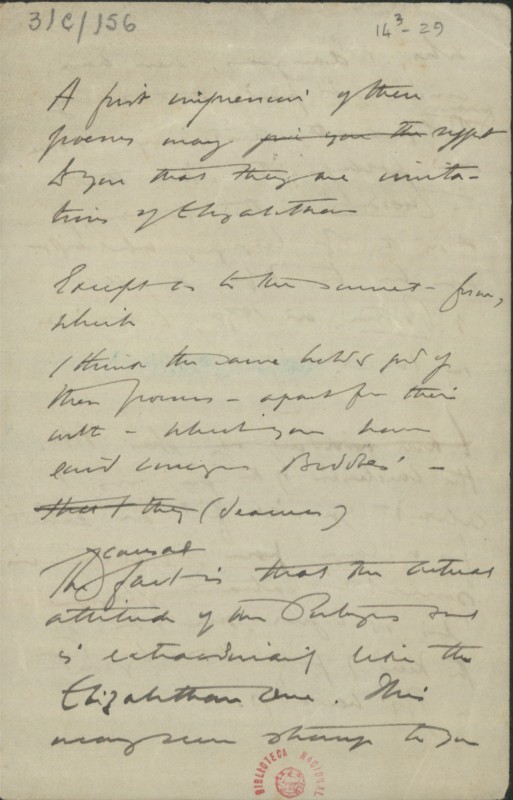 31C/156
14³-29
A first impression of these
poems may give you the suggest
to you that they are imita-
tions of Elizabethan
Except as to the sonnet-form,
which
I think the same holds good of
these poems - apart from their
- which you have
said Bubbles' -
that they (
casual
The fact is that the actual
attitude of the Portuguese soul
is extraordinarily like the
Elizabethan one. This
may seem strange to you
BIBLIOTECA NACIONAL